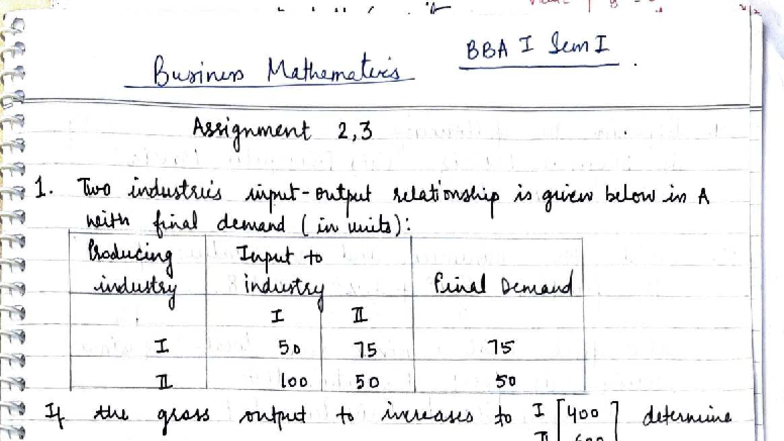 BBA I Sem I
Business Mathematics
Assignment 2,3
1. Two industries input-output relationship is given below in A
with final demand (in units):
Producing industry | Input to industry | Final Demand
I | II
I | 50 | 75 | 75
II | 100 | 50 | 50
If the gross output to increases to I [400] determine
II